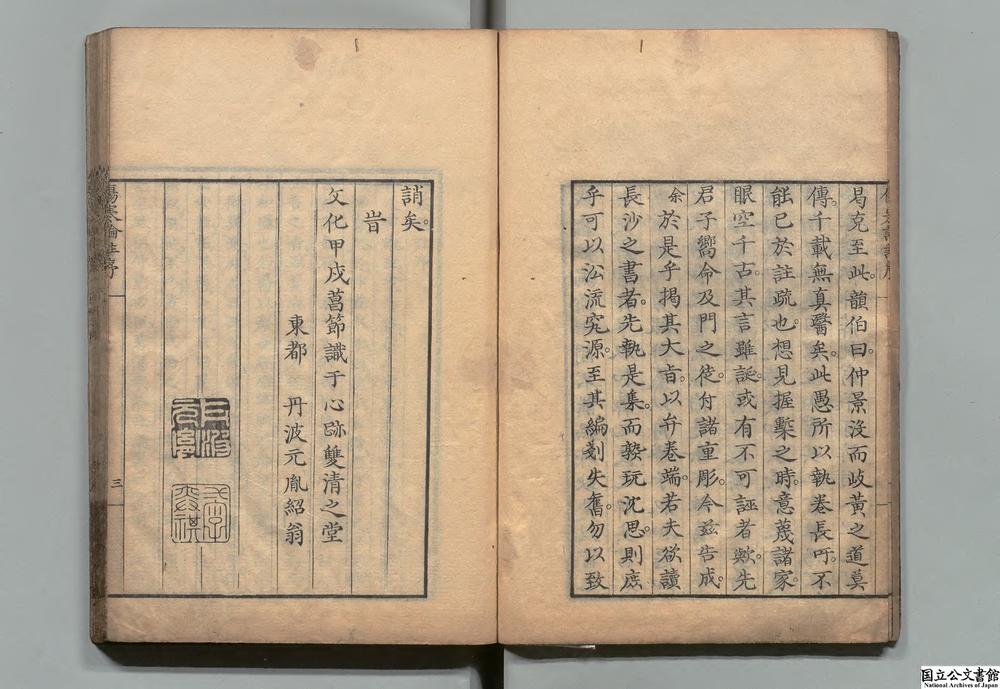 曷克至此。韻伯曰。仲景沒而岐黃之道莫
傳。千載無真醫矣。此愚所以執卷長吁。不
能已於註疏也。想見握槧之時。意蔑諸家。
眼空千古。其言雖誕。或有不可誣者歟。先
君子嚮命及門之徒。付諸重彫。今茲告成。
余於是乎揭其大旨。以弁卷端。若夫欲讀
長沙之書者。先執是集。而熟玩沈思。則庶
乎可以沿流究源。至其編剗失舊。勿以致
誚矣。
旹
文化甲戌菖節識于心跡雙清之堂
東都 丹波元胤紹翁
傷寒論註序
三
国立公文書館
National Archives of Japan